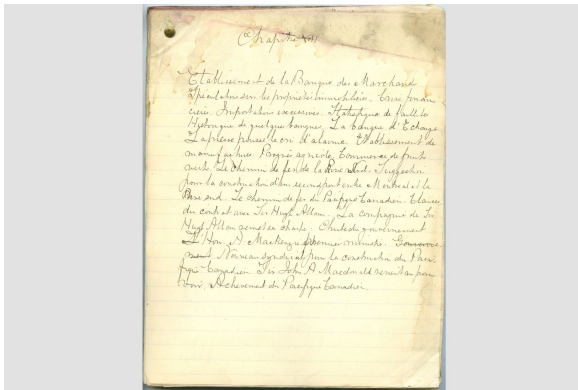 Chapitre
Etablissement de la Banque des Marchands
Spéculation sur les propriétés immobilières. Crise finan
cière. Importations excessives. Statistique de faillites
Historique de quelques banques. La banque d'Echange
La presse pousse le cri d'alarme. Etablissement de
manufactures. Progrès agricole. Commerce de fruits
verts. Le chemin de fer de la Rive Sud. Suggestion
pour la construction d'un second pont entre Montréal et la
Rive sud. Le chemin de fer du Pacifique Canadien. Clauses
du contrat avec Sir Hugh Allan. La compagnie de Sir
Hugh Allan remet sa charte. Chute du gouvernement
L'Hon. A Mackenzie premier ministre. Gouverne
ment Nouveau syndicat pour la construction du Paci
fique Canadien Sir John A Macdonald revient au pou
voir. Achèvement du Pacifique Canadien.